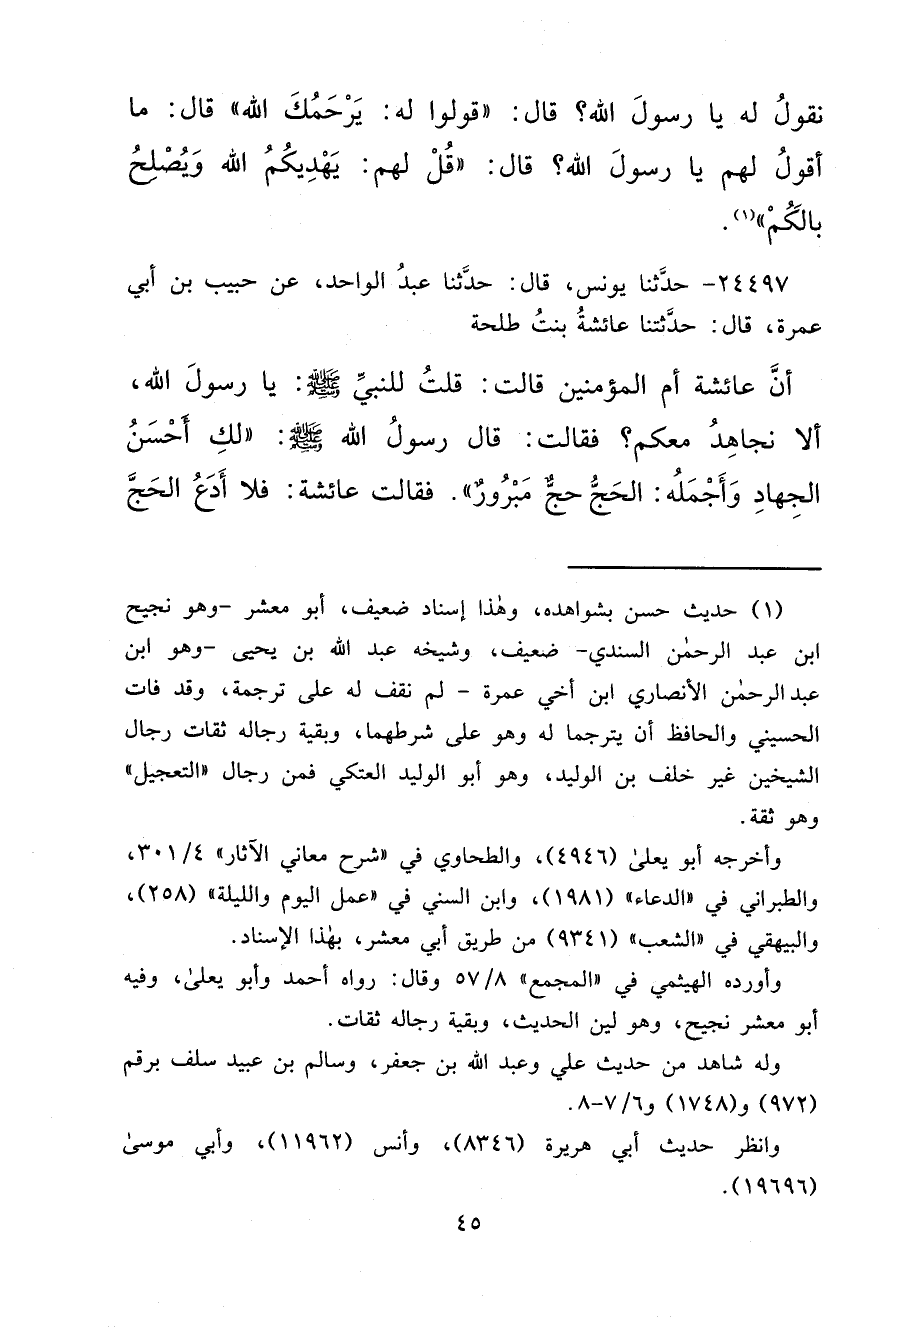 نقولُ له يا رسولَ الله؟ قال: «قولوا له: يَرْحَمُكَ الله» قال: ما
أقولُ لهم يا رسولَ الله؟ قال: «قُلْ لهم: يَهْدِيكُمُ الله وَيُصْلِحُ
بالَكُمْ»(١).
٢٤٤٩٧- حدَّثنا يونس، قال: حدَّثنا عبدُ الواحد، عن حبيب بن أبي
عمرة، قال: حدَّثتنا عائشةُ بنتُ طلحة
أنَّ عائشة أم المؤمنين قالت: قلتُ للنبيِّ ﷺ: يا رسولَ الله،
ألا نجاهِدُ معكم؟ فقالت: قال رسولُ الله ﷺ: «لكِ أَحْسَنُ
الجِهادِ وَأَجْمَلُه: الحَجُّ حجٌّ مَبْرُورٌ». فقالت عائشة: فلا أَدَعُ الحَجَّ
(١) حديث حسن بشواهده، وهٰذا إسناد ضعيف، أبو معشر -وهو نجيح
ابن عبد الرحمٰن السندي- ضعيف، وشيخه عبد الله بن يحيى -وهو ابن
عبد الرحمٰن الأنصاري ابن أخي عمرة - لم نقف له على ترجمة، وقد فات
الحسيني والحافظ أن يترجما له وهو على شرطهما، وبقية رجاله ثقات رجال
الشيخين غير خلف بن الوليد، وهو أبو الوليد العتكي فمن رجال «التعجيل»
وهو ثقة.
وأخرجه أبو يعلىٰ (٤٩٤٦)، والطحاوي في «شرح معاني الآثار» ٣٠١/٤،
والطبراني في «الدعاء» (١٩٨١)، وابن السني في «عمل اليوم والليلة» (٢٥٨)،
والبيهقي في «الشعب» (٩٣٤١) من طريق أبي معشر، بهٰذا الإسناد.
وأورده الهيثمي في «المجمع» ٥٧/٨ وقال: رواه أحمد وأبو يعلىٰ، وفيه
أبو معشر نجيح، وهو لين الحديث، وبقية رجاله ثقات.
وله شاهد من حديث علي وعبد الله بن جعفر، وسالم بن عبيد سلف برقم
(٩٧٢) و(١٧٤٨) و٧/٦-٨.
وانظر حديث أبي هريرة (٨٣٤٦)، وأنس (١١٩٦٢)، وأبي موسىٰ
(١٩٦٩٦).
٤٥